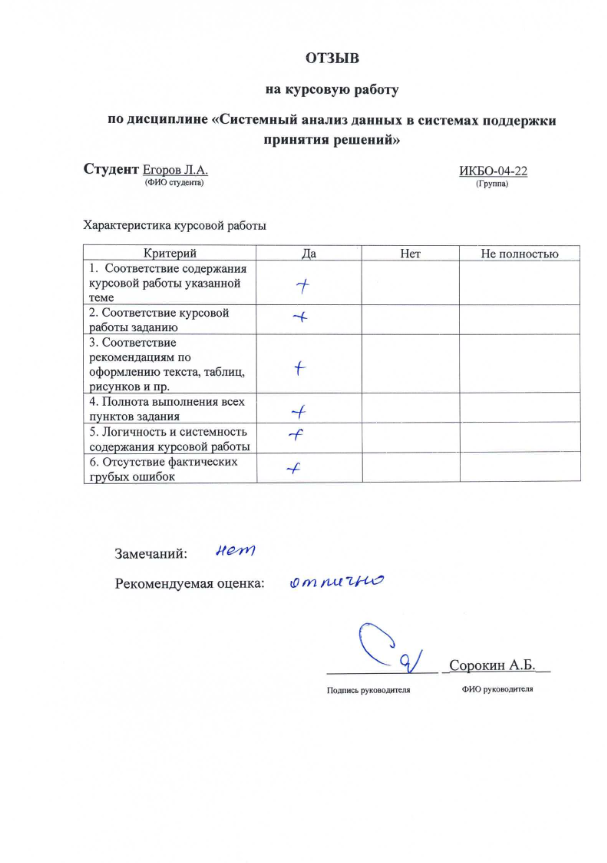 ОТЗЫВ
на курсовую работу
по дисциплине «Системный анализ данных в системах поддержки
принятия решений»
Студент Егоров Л.А. ИКБО-04-22
(ФИО студента) (Группа)
Характеристика курсовой работы
Критерий Да Нет Не полностью
1. Соответствие содержания
курсовой работы указанной
теме +
2. Соответствие курсовой
работы заданию +
3. Соответствие
рекомендациям по
оформлению текста, таблиц,
рисунков и пр. +
4. Полнота выполнения всех
пунктов задания +
5. Логичность и системность
содержания курсовой работы +
6. Отсутствие фактических
грубых ошибок +
Замечаний: нет
Рекомендуемая оценка: отлично
Сорокин А.Б.
Подпись руководителя ФИО руководителя